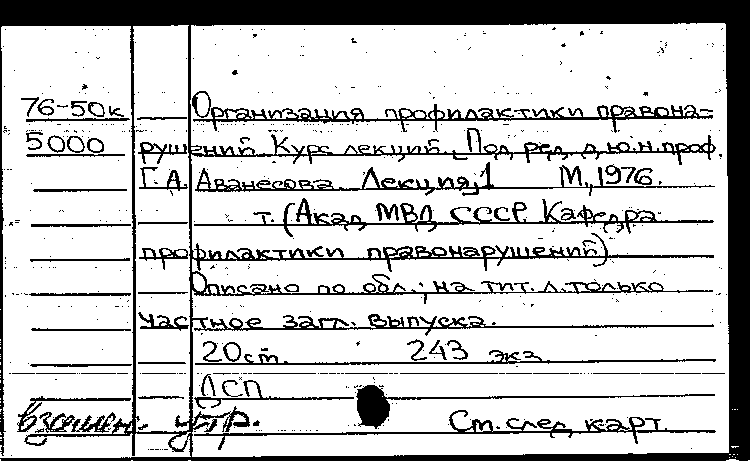 76-50к Организация профилактики правона=
5000 рушений. Курс лекций. Под ред. д.ю.н. проф.
Г.А. Аванесова. Лекция, 1 М., 1976.
т. (Акад МВД СССР. Кафедра
профилактики правонарушений)
Описано по обл.; на тит. л. только
частное загл. выпуска.
20 ст. 243 экз.
ДСП
взамен. утр. Ст. след. карт.